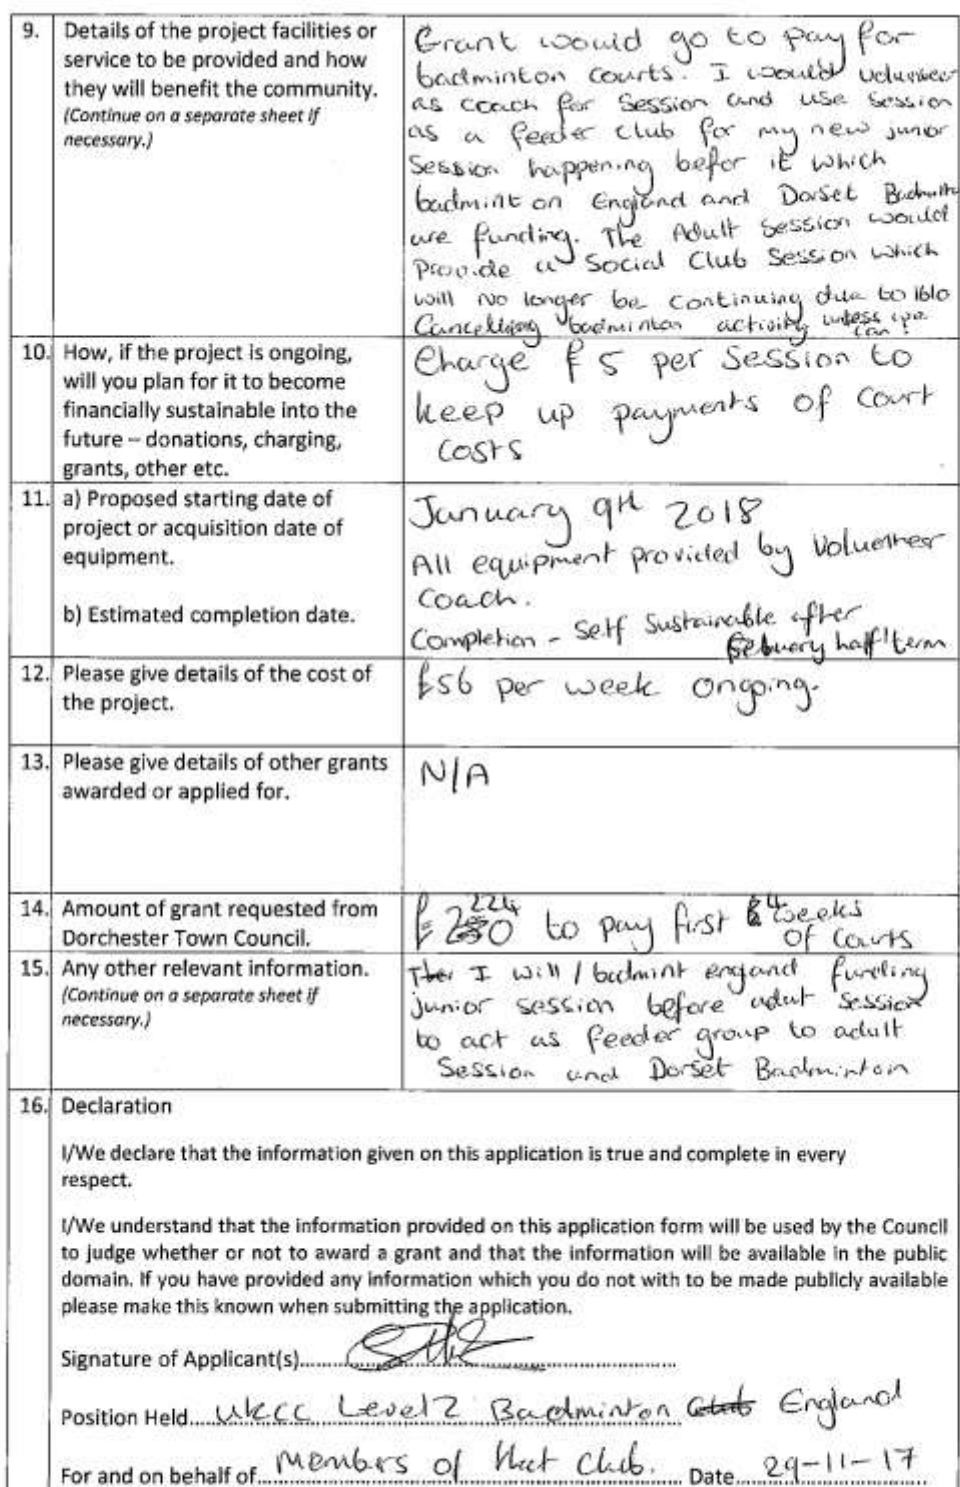 9. Details of the project facilities or
service to be provided and how
they will benefit the community.
(Continue on a separate sheet if
necessary.)
Grant would go to pay for
badminton courts. I would volunteer
as coach for session and use session
as a feeder club for my new junior
Session happening befor it which
badminton England and Dorset Badmint
are funding. The Adult session would
Provide a Social Club Session which
will no longer be continuing due to 1610
Cancelling badminton activity unless we
can!
10. How, if the project is ongoing,
will you plan for it to become
financially sustainable into the
future – donations, charging,
grants, other etc.
Charge £5 per Session to
keep up payments of court
costs
11. a) Proposed starting date of
project or acquisition date of
equipment.
b) Estimated completion date.
January 9th 2018
All equipment provided by Volunteer
Coach.
Completion - Self Sustainable after
Febuery half term
12. Please give details of the cost of
the project.
£56 per week ongoing.
13. Please give details of other grants
awarded or applied for.
N/A
14. Amount of grant requested from
Dorchester Town Council.
£ 224 to pay first 4 weeks
of Courts
15. Any other relevant information.
(Continue on a separate sheet if
necessary.)
I will / badmint england funding
junior session before adult session
to act as feeder group to adult
Session and Dorset Badminton
16. Declaration
I/We declare that the information given on this application is true and complete in every
respect.
I/We understand that the information provided on this application form will be used by the Council
to judge whether or not to award a grant and that the information will be available in the public
domain. If you have provided any information which you do not with to be made publicly available
please make this known when submitting the application.
Signature of Applicant(s)
Position Held UKCC Level 2 Badminton England
For and on behalf of Members of Club. Date 29-11-17